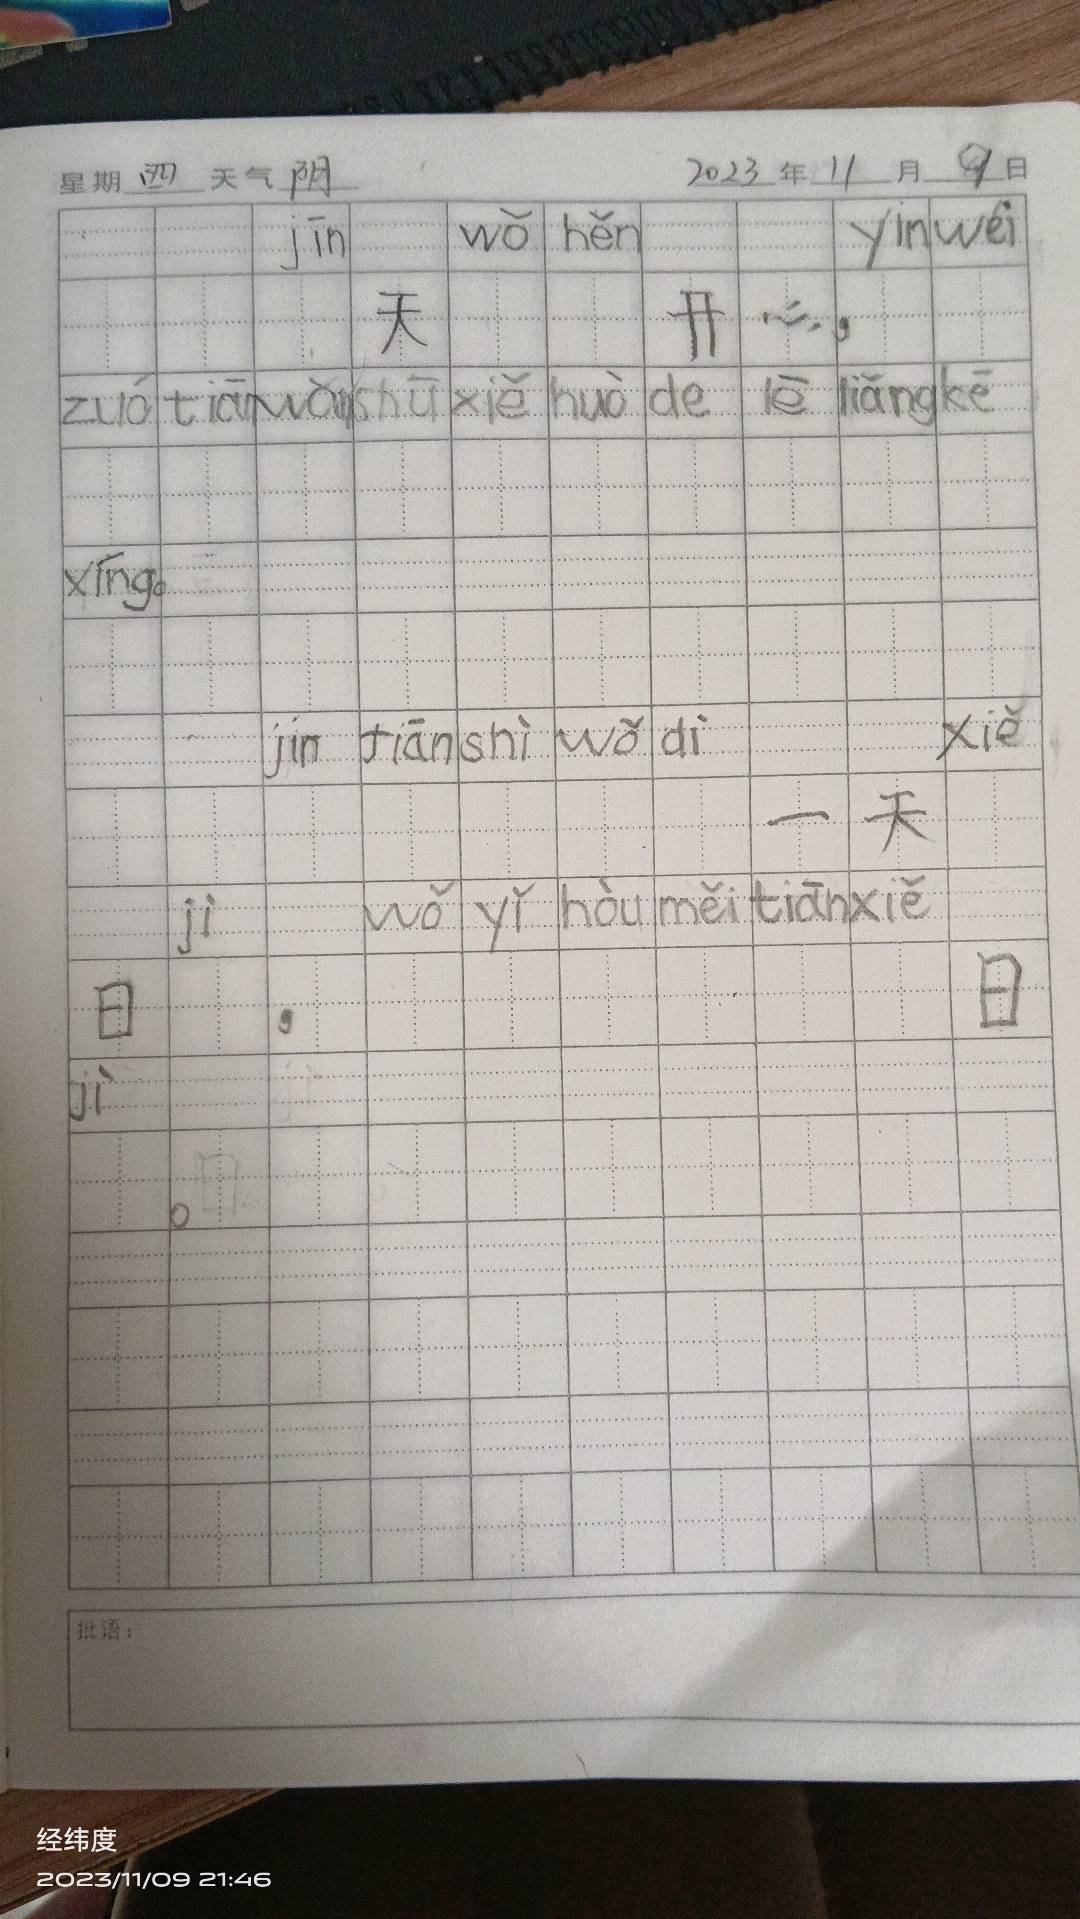 星期 四 天气 阴 2023 年 11 月 9 日
jīn 天 wǒ hěn 开心, yīn wèi
zuó tiān wǎn shū xiě huò de lē liǎng kē
xīng。
jin tiān shì wǒ dì 一天 xiě
日 jì , wǒ yǐ hòu měi tiān xiě 日
jì 。
批语:
经纬度
2023/11/09 21:46